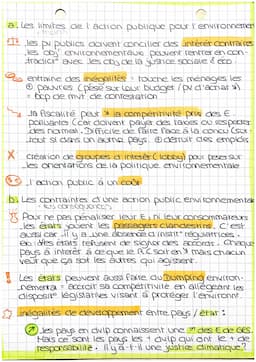 a. Les limites de l'action publique pour l'environnement
les pv publics doivent concilier des intérêt contraires
les obj environnementaux peuvent rentrer en con-
tradict° avec les obj de la justice sociale & éco.
entraine des inégalités : touche les ménages les
⊕ pauvres (pèse sur leur budget / pv d'achat ↘)
= bcp de mvt de contestation
la fiscalité peut ↘ la compétitivité prix des E
polluantes (car doivent payer des taxes ou respecter
des normes). Difficile de faire face à la concu (sur-
tout si dans un autre pays. ⊕ détruit des emplois
création de groupes d'intérêt (lobby) pour peser sur
les orientations de la politique environnementale
l'action public a un coût
b. Les contraintes d'une action public environnementale
+ les conséquences
Pour ne pas pénaliser leur E, ni leur consommateurs
les états jouent les passagers clandestins. C'est
aussi car il y a une absence d'instit° régulatrices.
des états refusent de signer des accords. Chaque
pays a intérêt à ce que le RC soit en ↘ mais chacun
veut que ça soit les autres qui agissent
Les états peuvent aussi faire du Dumping environ-
nemental = accroit sa compétitivité en allégeant les
disposit° législatives visant à protéger l'environnt.
inégalités de développement entre pays / état :
les pays en dvlp connaissent une ↗ des E de GES
Mais ce sont les pays les + dvlp qui ont le + de
responsabilité. Il y a-t-il une justice climatique?